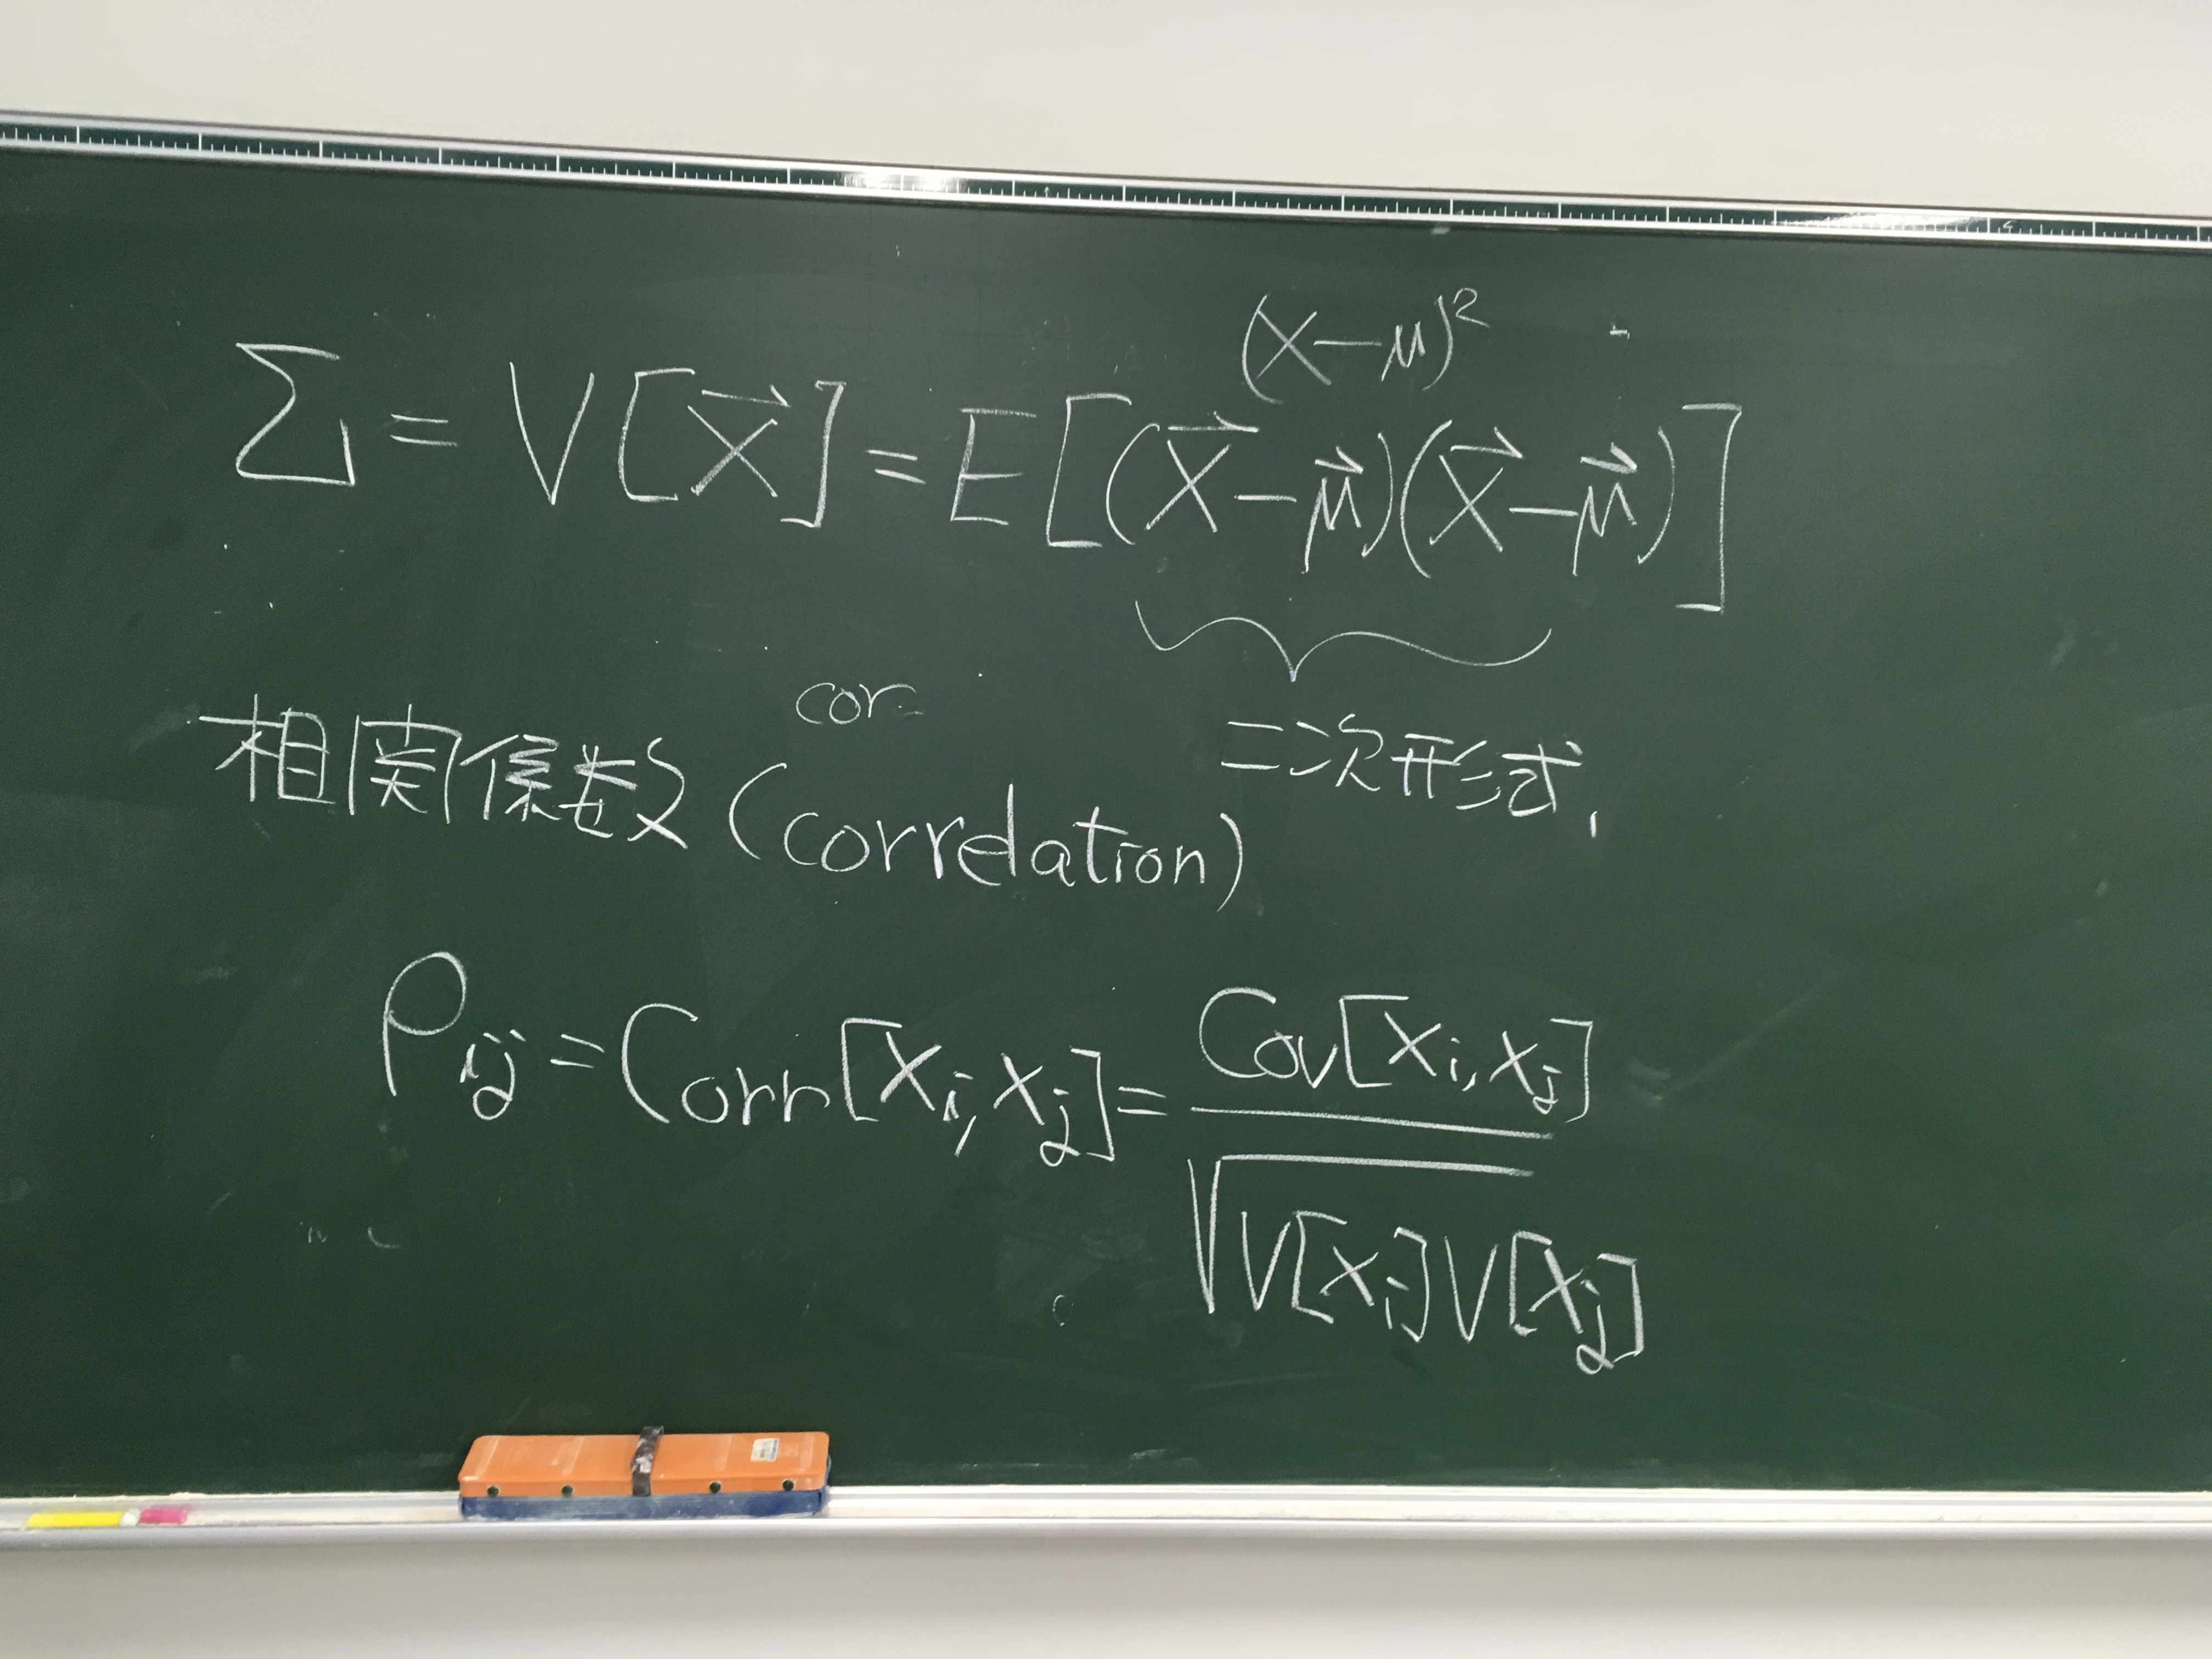 (X−μ)²
Σ = V[X⃗] = E[(X⃗−μ⃗)(X⃗−μ⃗)]
cor
二次形式,
相関係数(correlation)
ρij = Corr[Xi, Xj] = Cov[Xi, Xj]
√V[Xi]V[Xj]